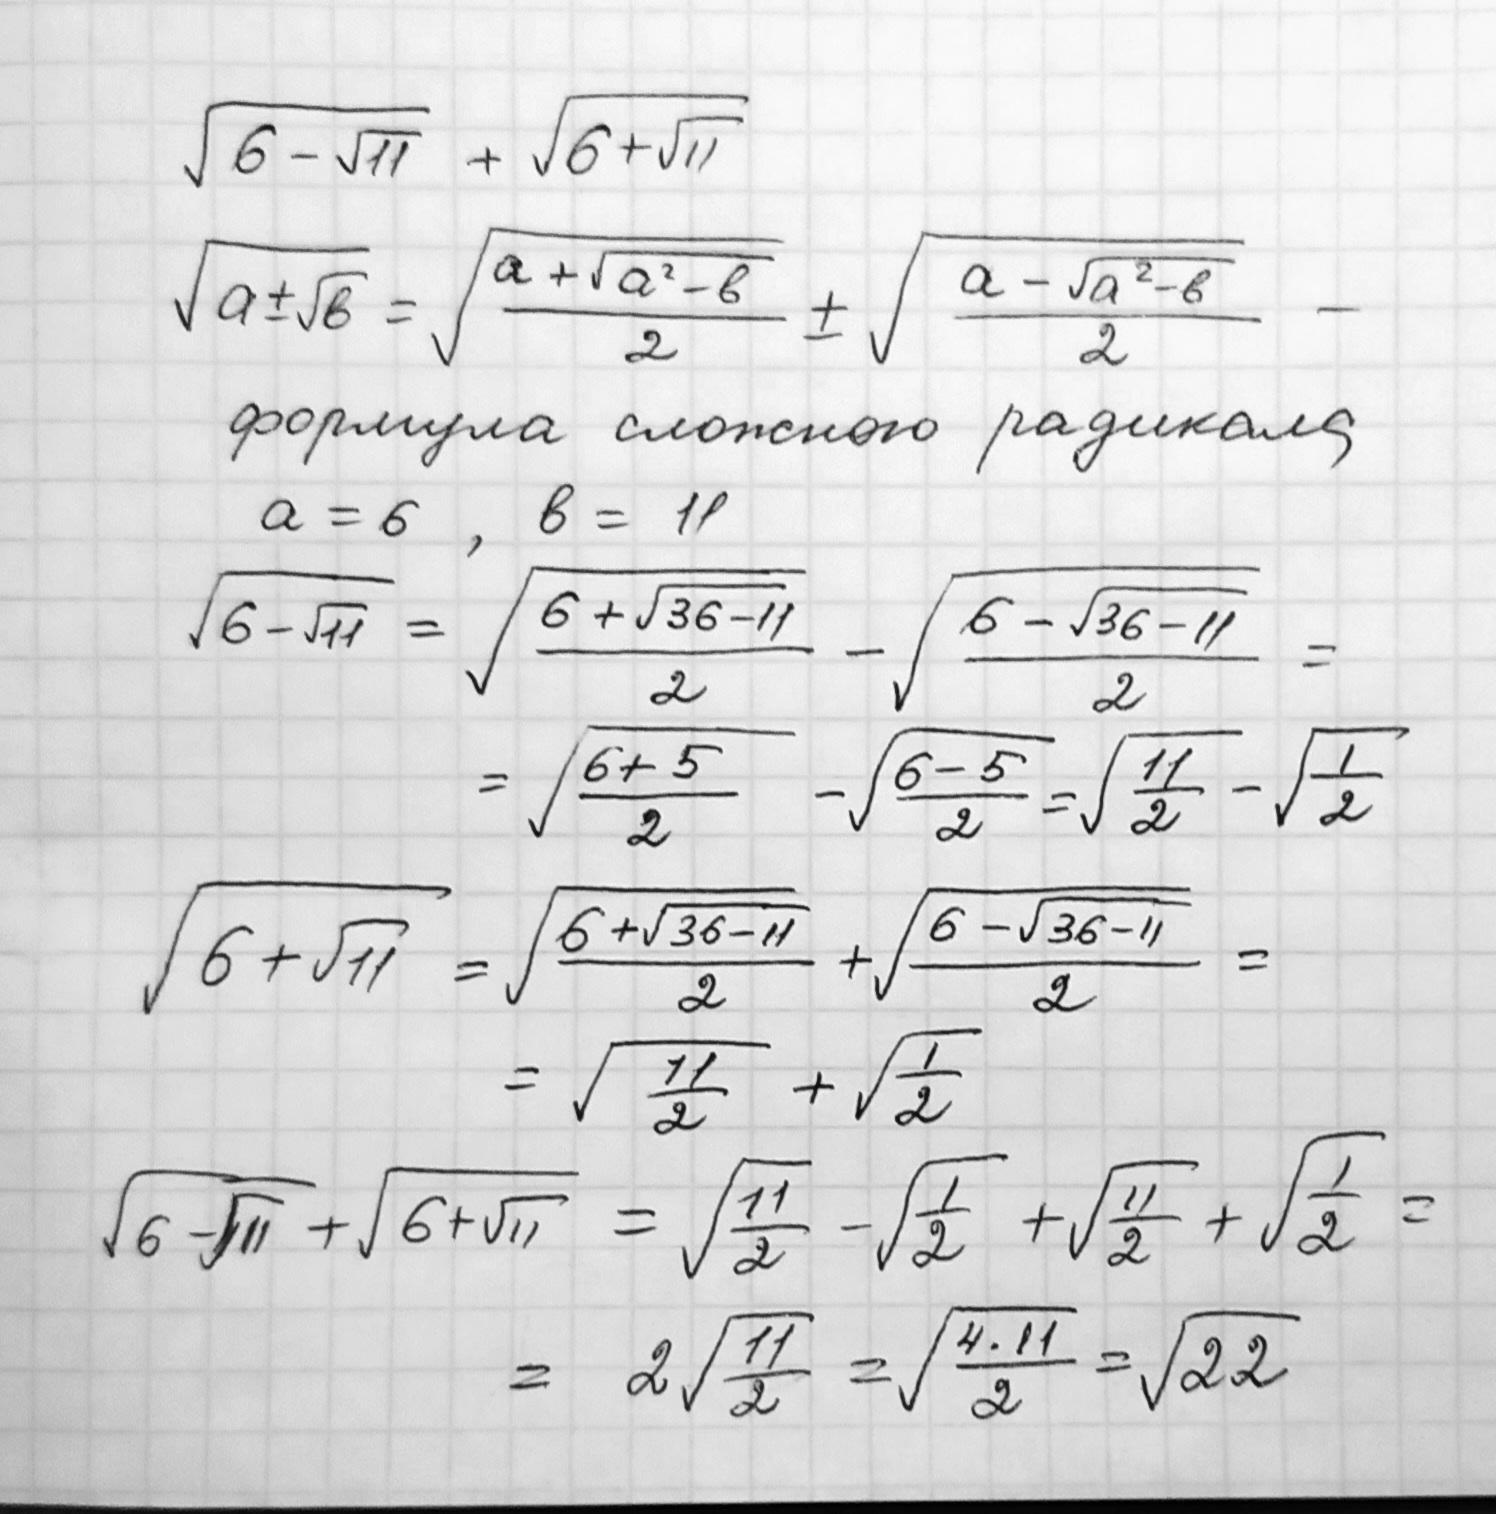 √(6 - √11) + √(6 + √11)
√(a ± √b) = √((a + √(a² - b))/2) ± √((a - √(a² - b))/2) -
формула сложного радикала
a = 6 , b = 11
√(6 - √11) = √((6 + √(36 - 11))/2) - √((6 - √(36 - 11))/2) =
= √((6 + 5)/2) - √((6 - 5)/2) = √(11/2) - √(1/2)
√(6 + √11) = √((6 + √(36 - 11))/2) + √((6 - √(36 - 11))/2) =
= √(11/2) + √(1/2)
√(6 - √11) + √(6 + √11) = √(11/2) - √(1/2) + √(11/2) + √(1/2) =
= 2√(11/2) = √((4 · 11)/2) = √22